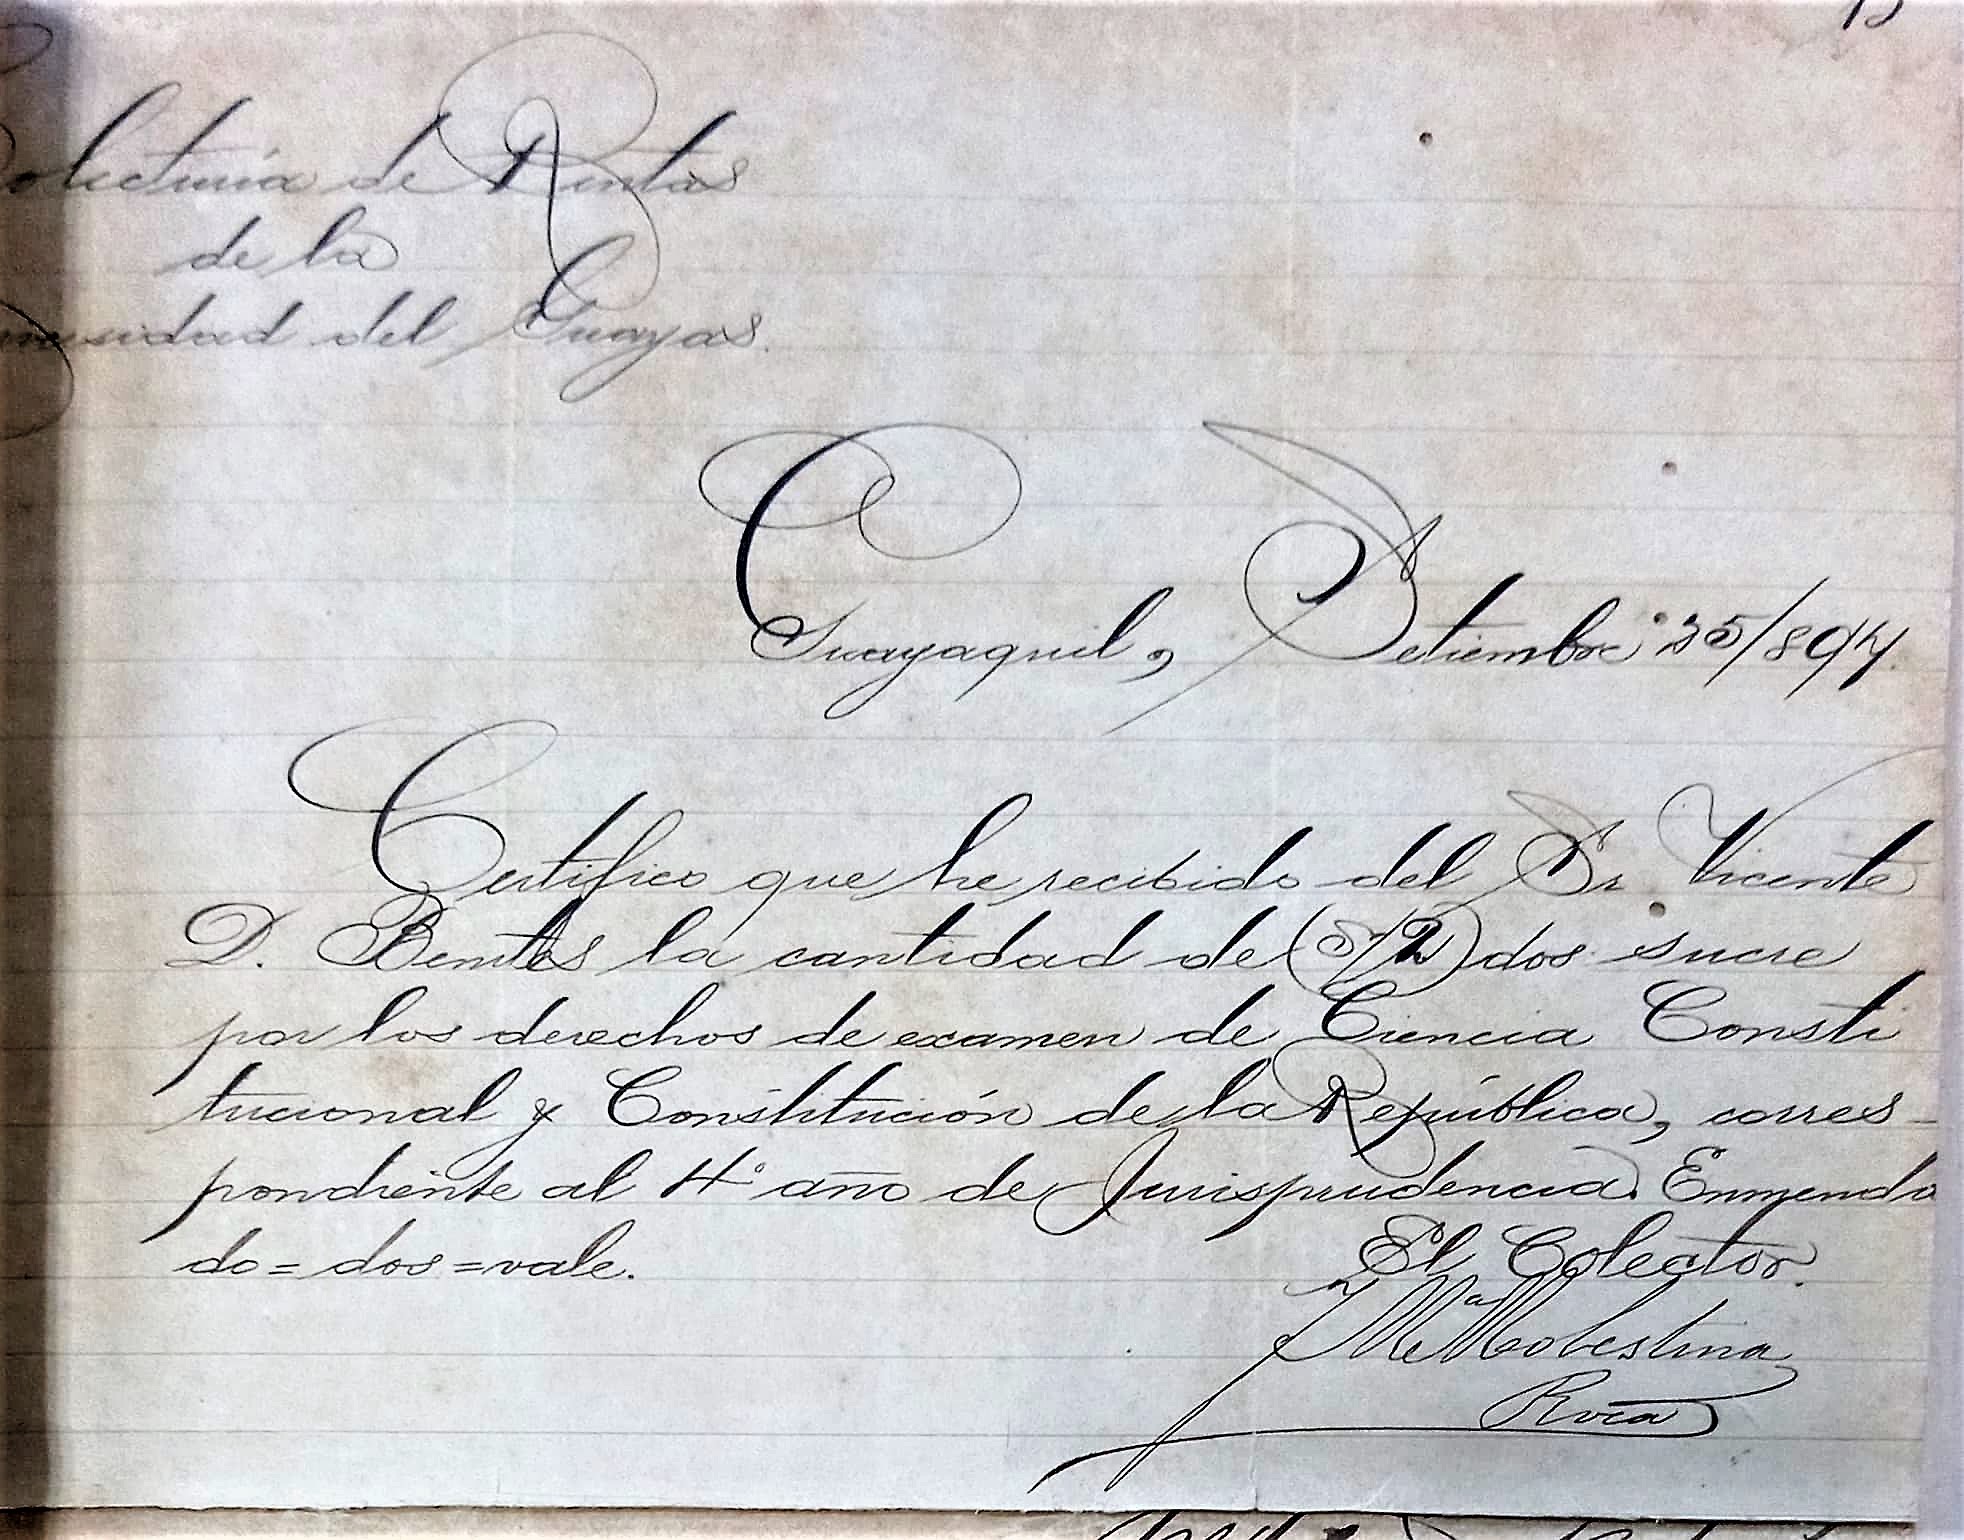 Colecturía de Rentas
de la
Universidad del Guayas.
Guayaquil, Setiembre 25/894
Certifico que he recibido del Sr Vicente
D. Benites la cantidad de (S/2) dos sucre
por los derechos de examen de Ciencia Consti
tucional y Constitución de la República, corres-
pondiente al 4° año de Jurisprudencia. Enmenda
do = dos = vale.
El Colector.
J Mª Molestina
Roca